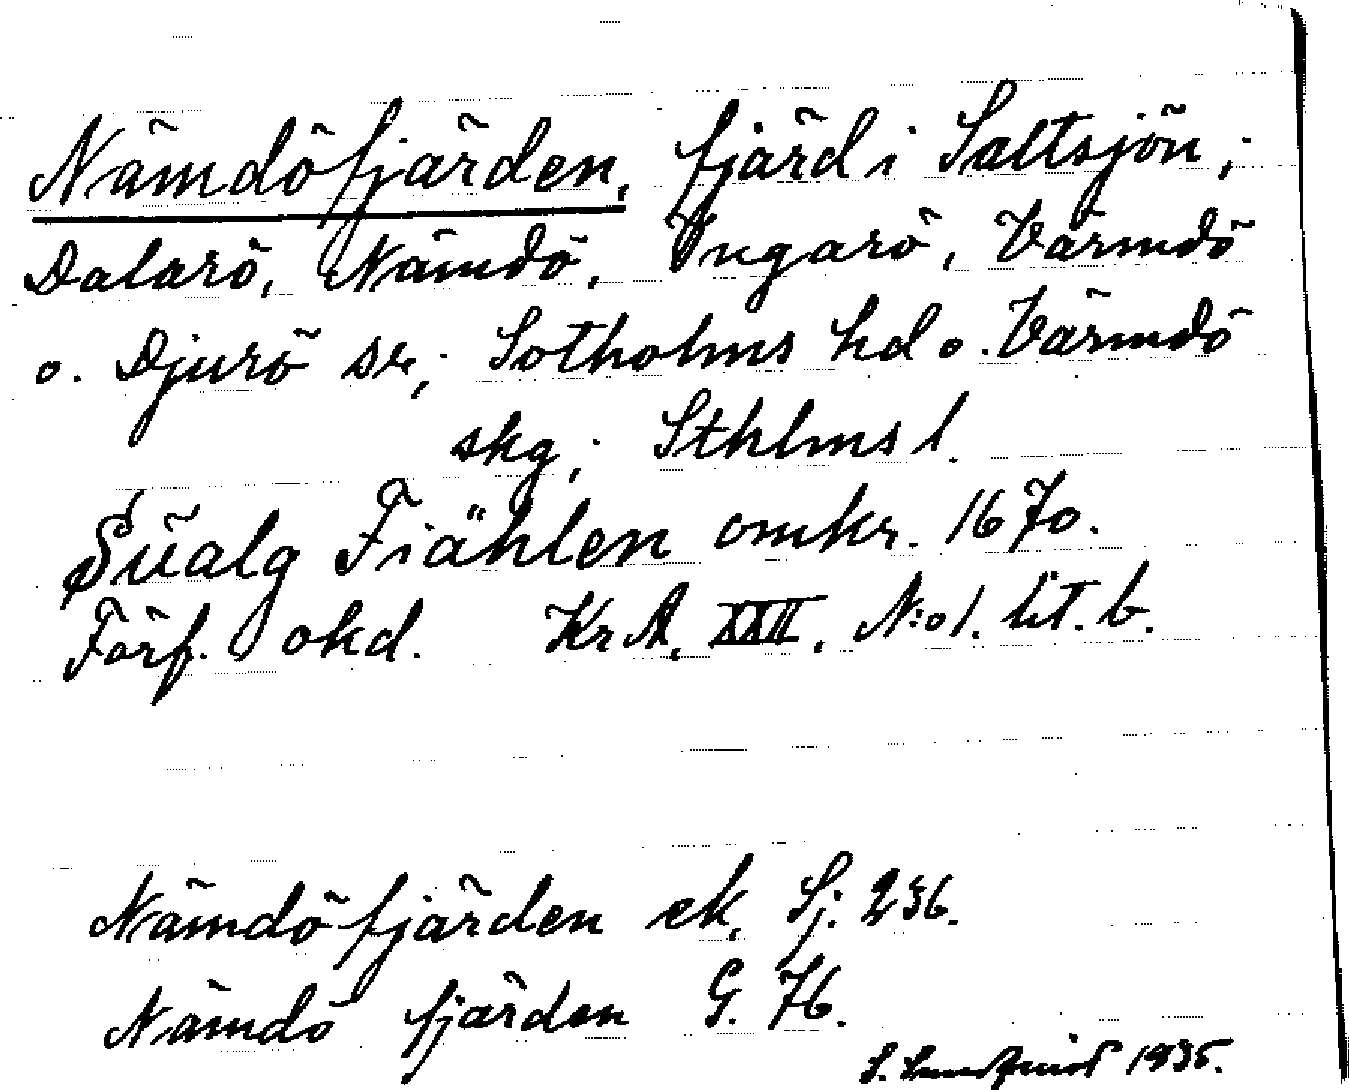 Nämdöfjärden, fjärd i Saltsjön;
Dalarö, Nämdö, Ingarö, Värmdö
o. Djurö sn; Sotholms hd o. Värmdö
skg; Sthlms l.
Süalg Fiählen omkr. 1670.
Förf. okd. KrA, XXII, N:o 1. lit. b.
Nämdöfjärden ek. Sj. 236.
Nämdö fjärden G. 76.
S. Lundquist 1935.